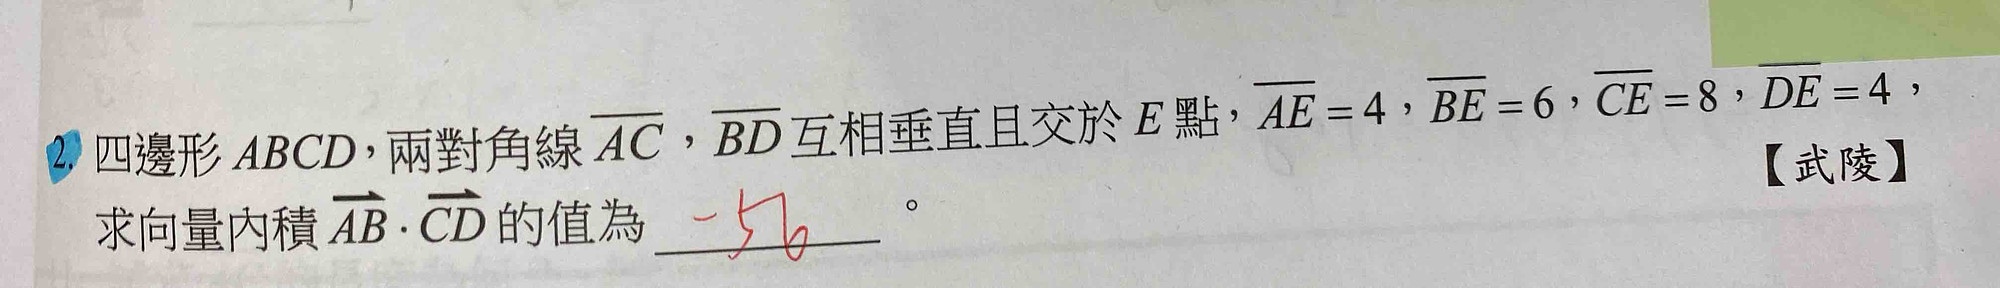 2. 四邊形 ABCD，兩對角線 AC，BD 互相垂直且交於 E 點，AE = 4，BE = 6，CE = 8，DE = 4，
【武陵】
求向量內積 AB · CD 的值為 -56 。